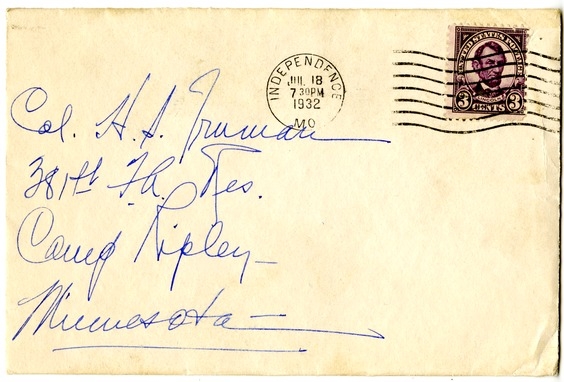 UNITED STATES POSTAGE
3 CENTS 3
INDEPENDENCE
JUL 18
7 30 PM
1932
MO.
Col. H. S. Truman
381st F.A. Res.
Camp Ripley
Minnesota